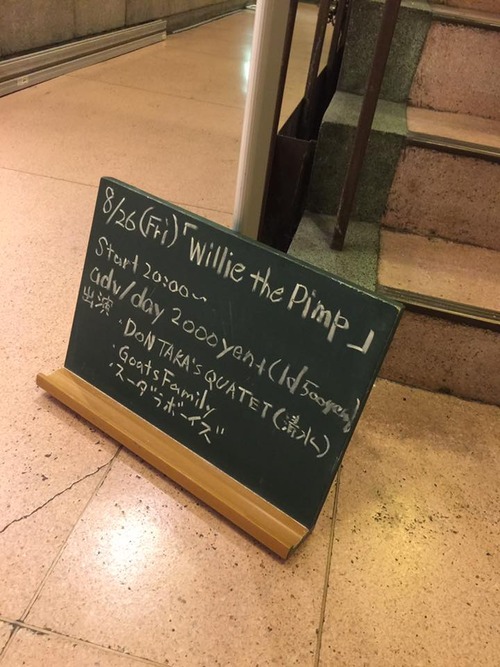 8/26(Fri)「Willie the Pimp」
Start 20:00~
adv/day 2000yen+(1d500yen)
出演 ・DON TAKA'S QUATET(清水)
・Goats Family
・スーダラボーイズ